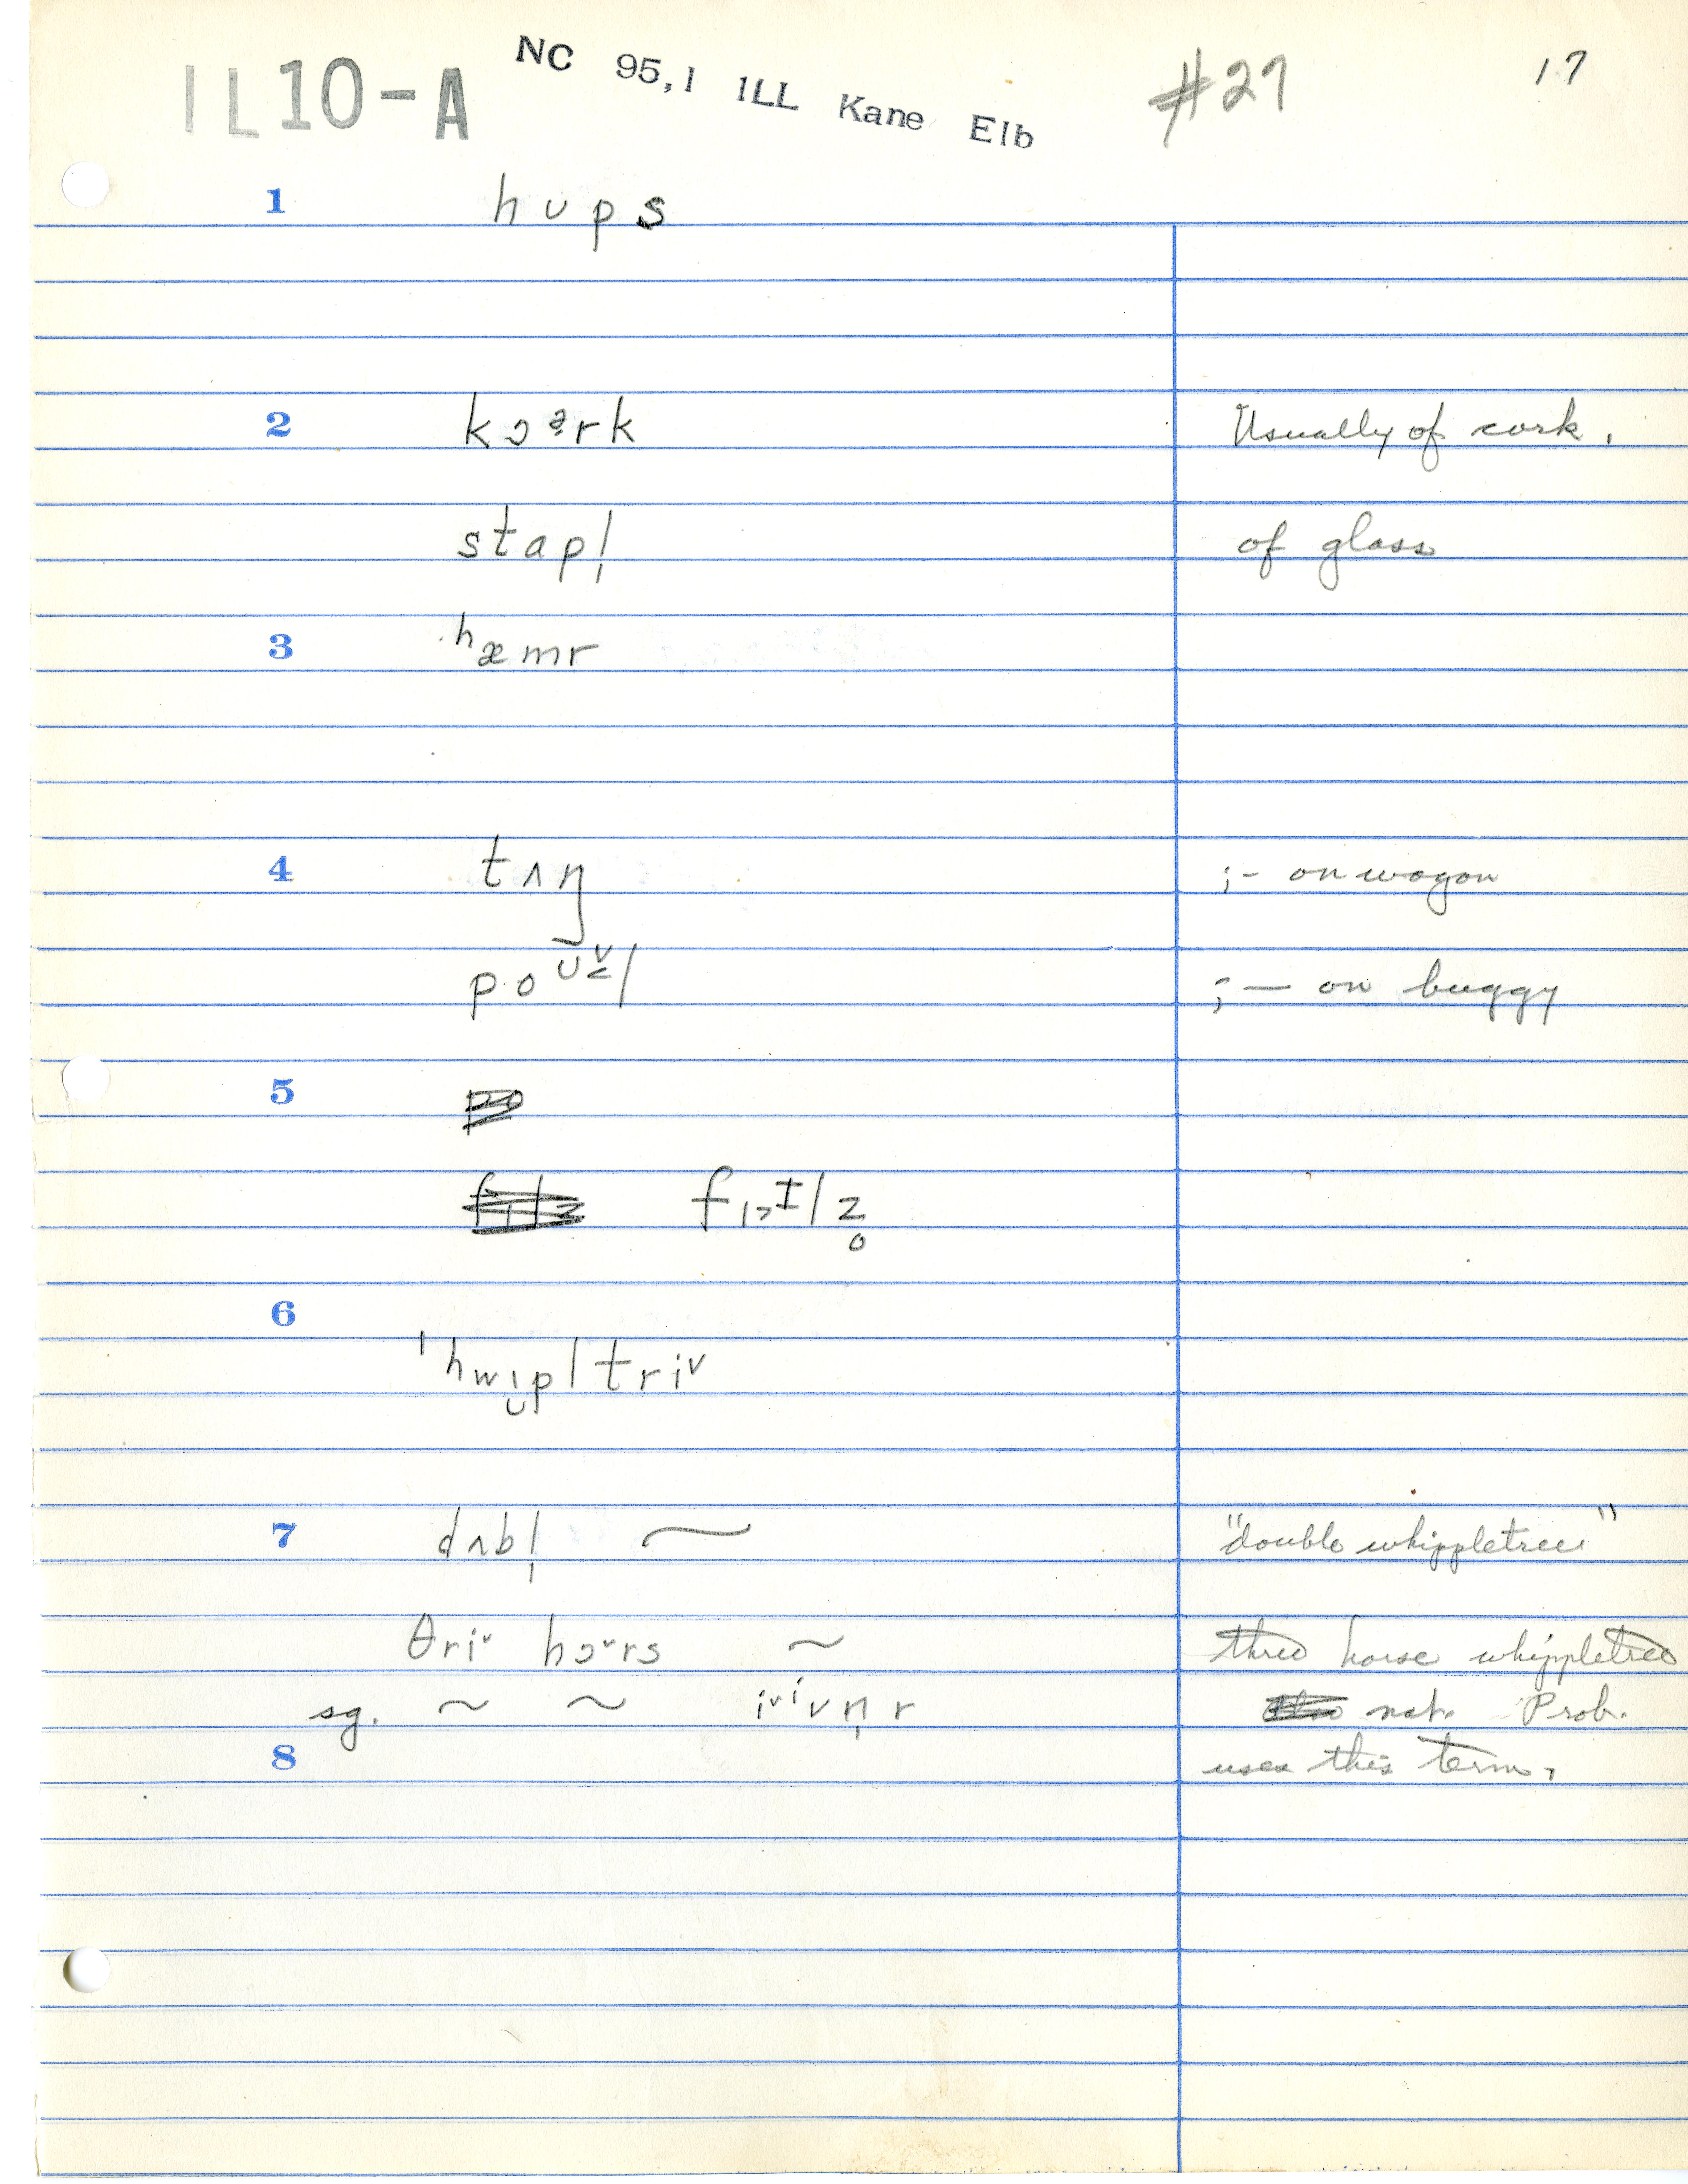 IL10-A NC 95,1 ILL Kane Elb #27 17
1 hᴜps
2 kɔᵊ̣rk Usually of cork.
stapl̩ of glass
3 ʰæmr
4 tʌŋ ;- on wagon
p·oᶷ̯l ;— on buggy
5
fɪ>ᶤlz̥
6 ˈhwɪ̯pltriᵛ
7 dʌbl̩ ~ "double whippletree"
θriᵛ hɔᵛrs ~ three horse whippletree
sg. ~ ~ iᵛⁱvn̩r nat. Prob.
8 uses this term.